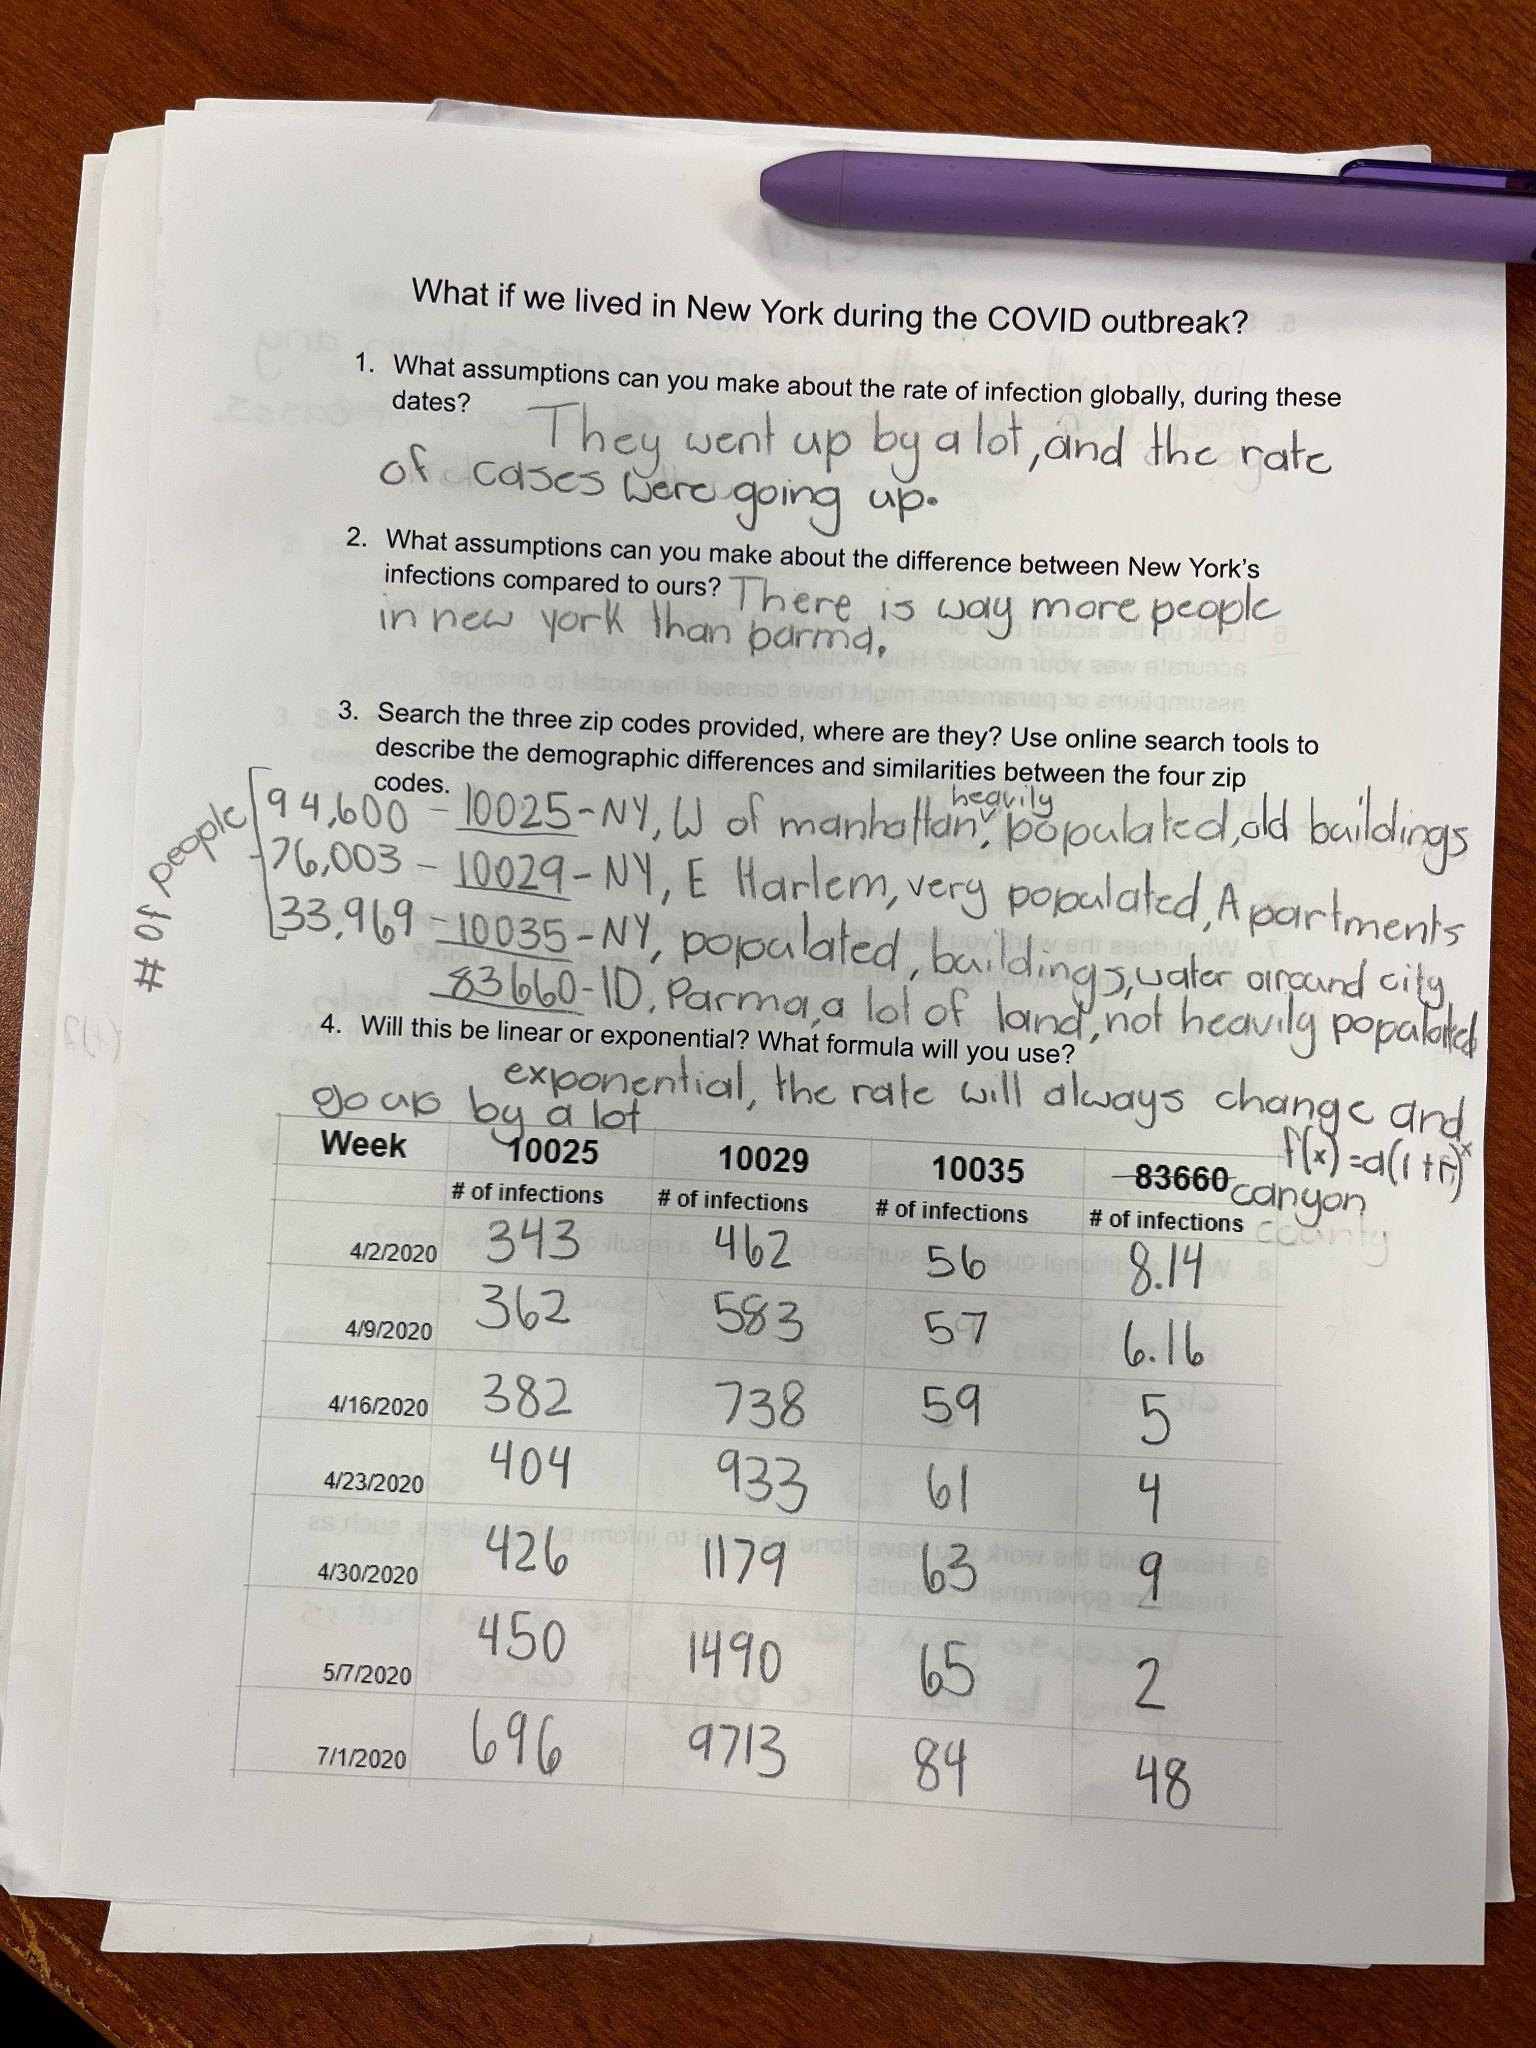 What if we lived in New York during the COVID outbreak?
1. What assumptions can you make about the rate of infection globally, during these
dates? They went up by a lot, and the rate
of cases were going up.
2. What assumptions can you make about the difference between New York's
infections compared to ours? There is way more people
in new york than parma.
3. Search the three zip codes provided, where are they? Use online search tools to
describe the demographic differences and similarities between the four zip
codes.
# of people
heavily
94,600 - 10025-NY, W of manhattan, populated, old buildings
76,003 - 10029-NY, E Harlem, very populated, Apartments
33,969 - 10035-NY, populated, buildings, water around city
83660-ID, Parma, a lot of land, not heavily populated
4. Will this be linear or exponential? What formula will you use?
exponential, the rate will always change and
go up by a lot
f(x)=a(1+r)^x
Week 10025 10029 10035 83660 canyon
county
# of infections # of infections # of infections # of infections
4/2/2020 343 462 56 8.14
4/9/2020 362 583 57 6.16
4/16/2020 382 738 59 5
4/23/2020 404 933 61 4
4/30/2020 426 1179 63 9
5/7/2020 450 1490 65 2
7/1/2020 696 9713 84 48